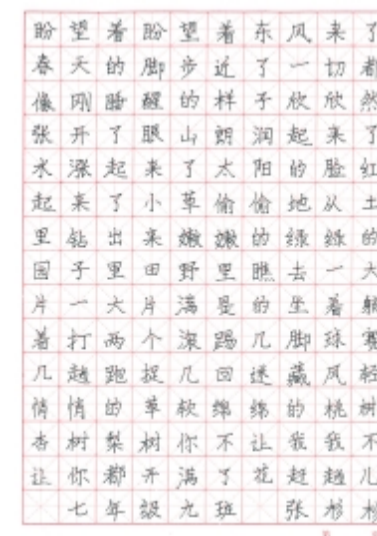 盼望着盼望着东风来了
春天的脚步近了一切都
像刚睡醒的样子欣欣然
张开了眼山朗润起来了
水涨起来了太阳的脸红
起来了小草偷偷地从土
里钻出来嫩嫩的绿绿的
园子里田野里瞧去一大
片一大片满是的坐着躺
着打两个滚踢几脚球赛
几趟跑捉几回迷藏风轻
悄悄的草软绵绵的桃树
杏树梨树你不让我我不
让你都开满了花赶趟儿
七年级九班 张